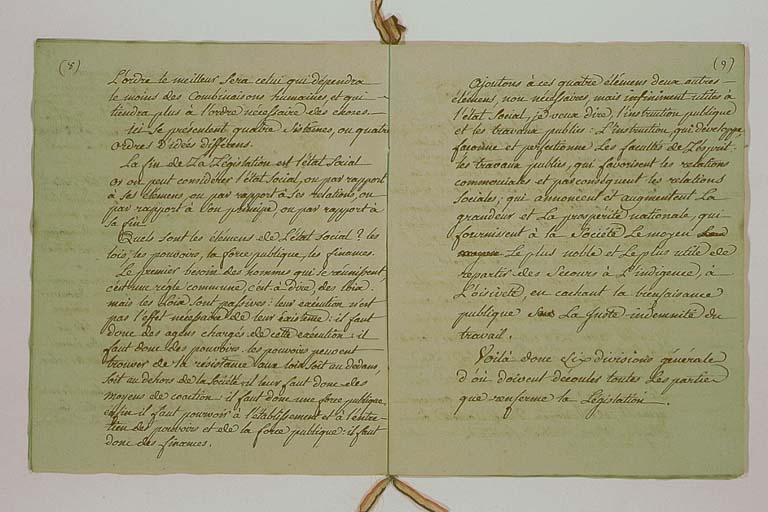 (8)
L'ordre le meilleur sera celui qui dépendra
le moins des Combinaisons humaines, et qui
tiendra plus à l'ordre nécessaire des choses.
Ici se présentent quatre Sistêmes, ou quatre
ordres d'idées différens.
La fin de La Législation est l'état Social
or on peut considérer l'état Social, ou par rapport
à ses élémens, ou par rapport à Ses relations, ou
par rapport à Son principe, ou par rapport à
sa fin.
Quels sont les élémens de L'état Social? les
lois, les pouvoirs, la force publique, les finances.
Le premier besoin des hommes qui se réunissent,
c'est une règle commune, c'est à Dire, des loix.
mais les loix Sont passives: leur exécution n'est
pas l'effet nécessaire de leur existence: il faut
donc des agens chargés de cette exécution: il
faut donc des pouvoirs. les pouvoirs peuvent
trouver de la résistance aux loix soit au dedans,
soit au dehors de la Société: il leur faut donc des
moyens de coaction: il faut donc une force publique.
enfin il faut pourvoir à l'établissement et à l'entre-
tien des pouvoirs et de la force publique: il faut
donc des finances.
(9)
Ajoutons à ces quatre élémens deux autres
élémens, non nécessaires mais infiniment utiles à
l'état Social, je veux dire, l'instruction publique
et les travaux publics. L'instruction, qui développe,
favorise et perfectionne Les facultés de L'esprit.
les travaux publics, qui favorisent les relations
commerciales et par conséquent les relations
Sociales; qui annoncent et augmentent La
grandeur et La prospérité nationale, qui
fournissent à la Société Le moyen
Le plus noble et Le plus utile de
répartir des Secours à L'indigence, à
L'oisiveté, en cachant la bienfaisance
publique La Juste indemnité du
travail.
Voilà donc Six divisions générale
d'où doivent découler toutes Les partie
que renferme la Législation.